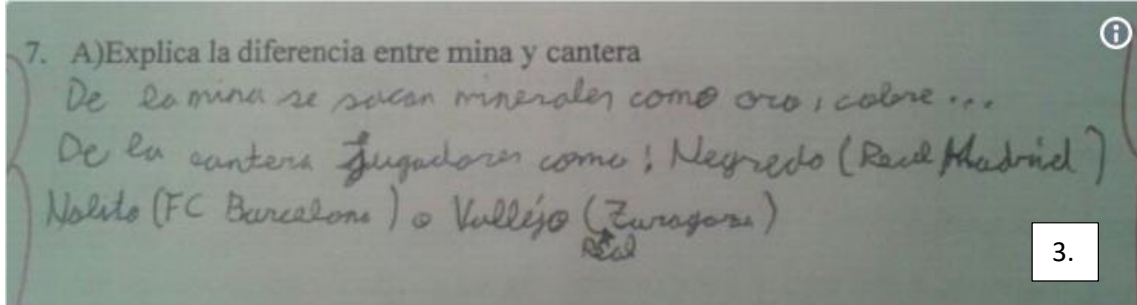 7. A)Explica la diferencia entre mina y cantera
De la mina se sacan minerales como oro, cobre...
De la cantera Jugadores como: Negredo (Real Madrid)
Nolito (FC Barcelona) o Vallejo (Zaragoza)
Real
3.